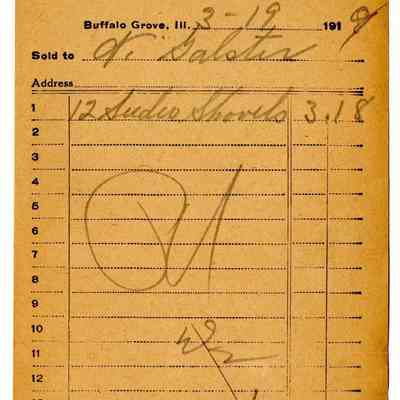 Buffalo Grove, Ill. 3-19 1918
Sold to N. Galster
Address
1 12 Sudio Shovels 3.18
2
3
4
5
6
7
8
9
10
11
12